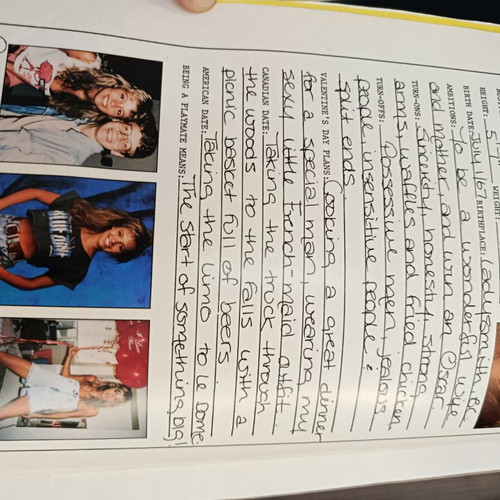 HEIGHT: 5' WEIGHT:
BIRTH DATE: July 1/67 BIRTHPLACE: Ladysmith, B.C.
AMBITIONS: To be a wonderful wife
and mother, and win an Oscar
TURN-ONS: Sincerity, honesty, strong
arms, waffles and fried chicken
TURN-OFFS: Possessive men, jealous
people, insensitive people &
split ends.
VALENTINE'S DAY PLANS: Cooking a great dinner
for a special man, wearing my
sexy little French-maid outfit.
CANADIAN DATE: Taking the truck through
the woods to the falls with a
picnic basket full of beers.
AMERICAN DATE: Taking the limo to le Dome.
BEING A PLAYMATE MEANS: The start of something big!